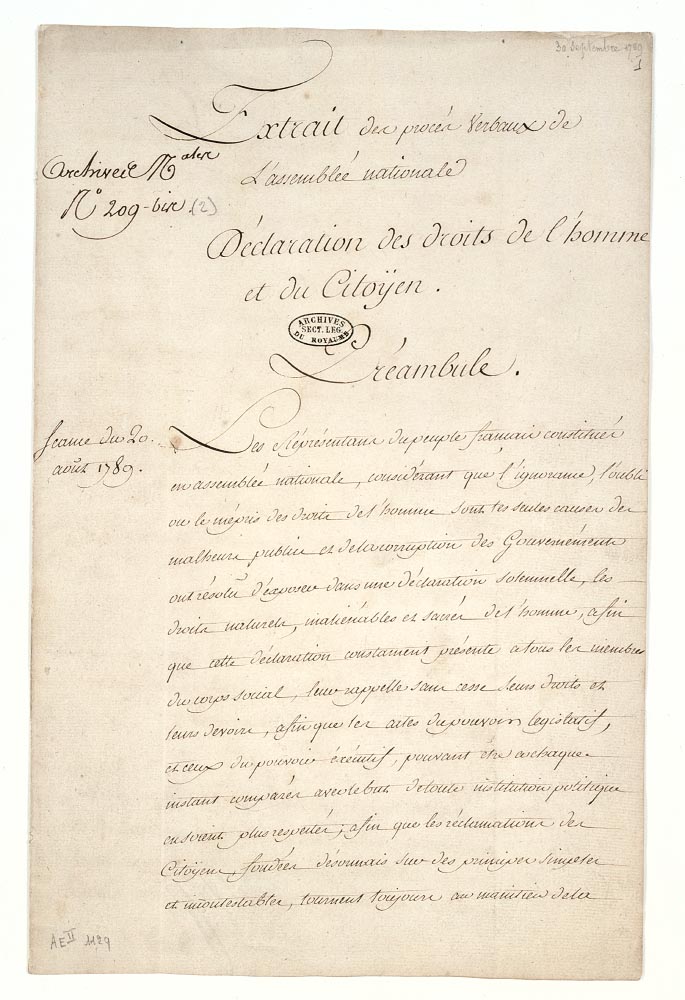 30 Septembre 1789
1
Extrait des procés Verbaux de
L'assemblée nationale
Archives N.ales
N.o 209-bis (2)
Déclaration des droits de l'homme
et du Citoÿen.
ARCHIVES
SECT. LEG.
DU ROYAUME
Préambule.
Seance du 20.
août 1789.
Les Réprésentans du peuple francais constitués
en assemblée nationale, considérant que l'ignorance, l'oubli
ou le mépris des droits de l'homme sont les seules causes des
malheurs publics et de la corruption des Gouvernéments
ont résolu d'exposer dans une déclaration solemnelle, les
droits naturels, inaliénables et sacrés de l'homme, afin
que cette déclaration constament présente a tous les membres
du corps social, leur rappelle sans cesse leurs droits et
leurs devoirs, afin que les actes du pouvoir legislatif,
et ceux du pouvoir éxécutif, pouvant être a chaque
instant comparés avec le but de toute institution politique
en soient plus respectés; afin que les réclamations des
Citoÿens, fondées désormais sur des principes simples
et incontestables, tournent toujours au maintien de la
AE II 1129